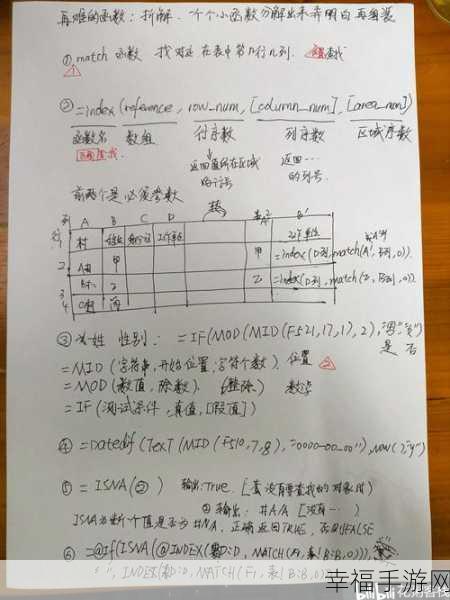 再难的函数：拆解、一个个小函数分解出来弄明白再组装
① match 函数 找对应在表中第几行几列.
② =index (reference, row_num, [column_num], [area_num])
函数名 数组 行序数 列序数 区域序数
返回 返回…
的行号 的列号.
前两个是必须参数
列 A B C D
行
1 村 姓名 身份证 工作单位 工作单位
2 A村 甲 甲 =index(D列,match(A',B列,0)).
3 乙 乙 =index(D列,match(乙,B列,0)).
4 C村 丙
③ 性别： =IF(MOD(MID(F521,17,1),2),"男","女")
是 否
=MID (字符串,开始位置,字符个数). 位置
=MOD (数值,除数). (整除)
=IF (测试条件,真值,[假值])
④ =Datedif(TEXT(MID(F510,7,8),"0000-00-00"),NOW(),"y")
⑤ = ISNA(②) 输出:True. [若没有要查找的对象时]
② 输出: #A/A [没有…]
ISNA判断一个值是否为#NA, 正确返回TRUE, 否则FALSE
⑥ =@If(ISNA(@INDEX(表!D:D, MATCH(F1,表!B:B,0))),
"", INDEX(表!D:D,MATCH(F1,表!B:B,0)))
幸福手游网
bilibili